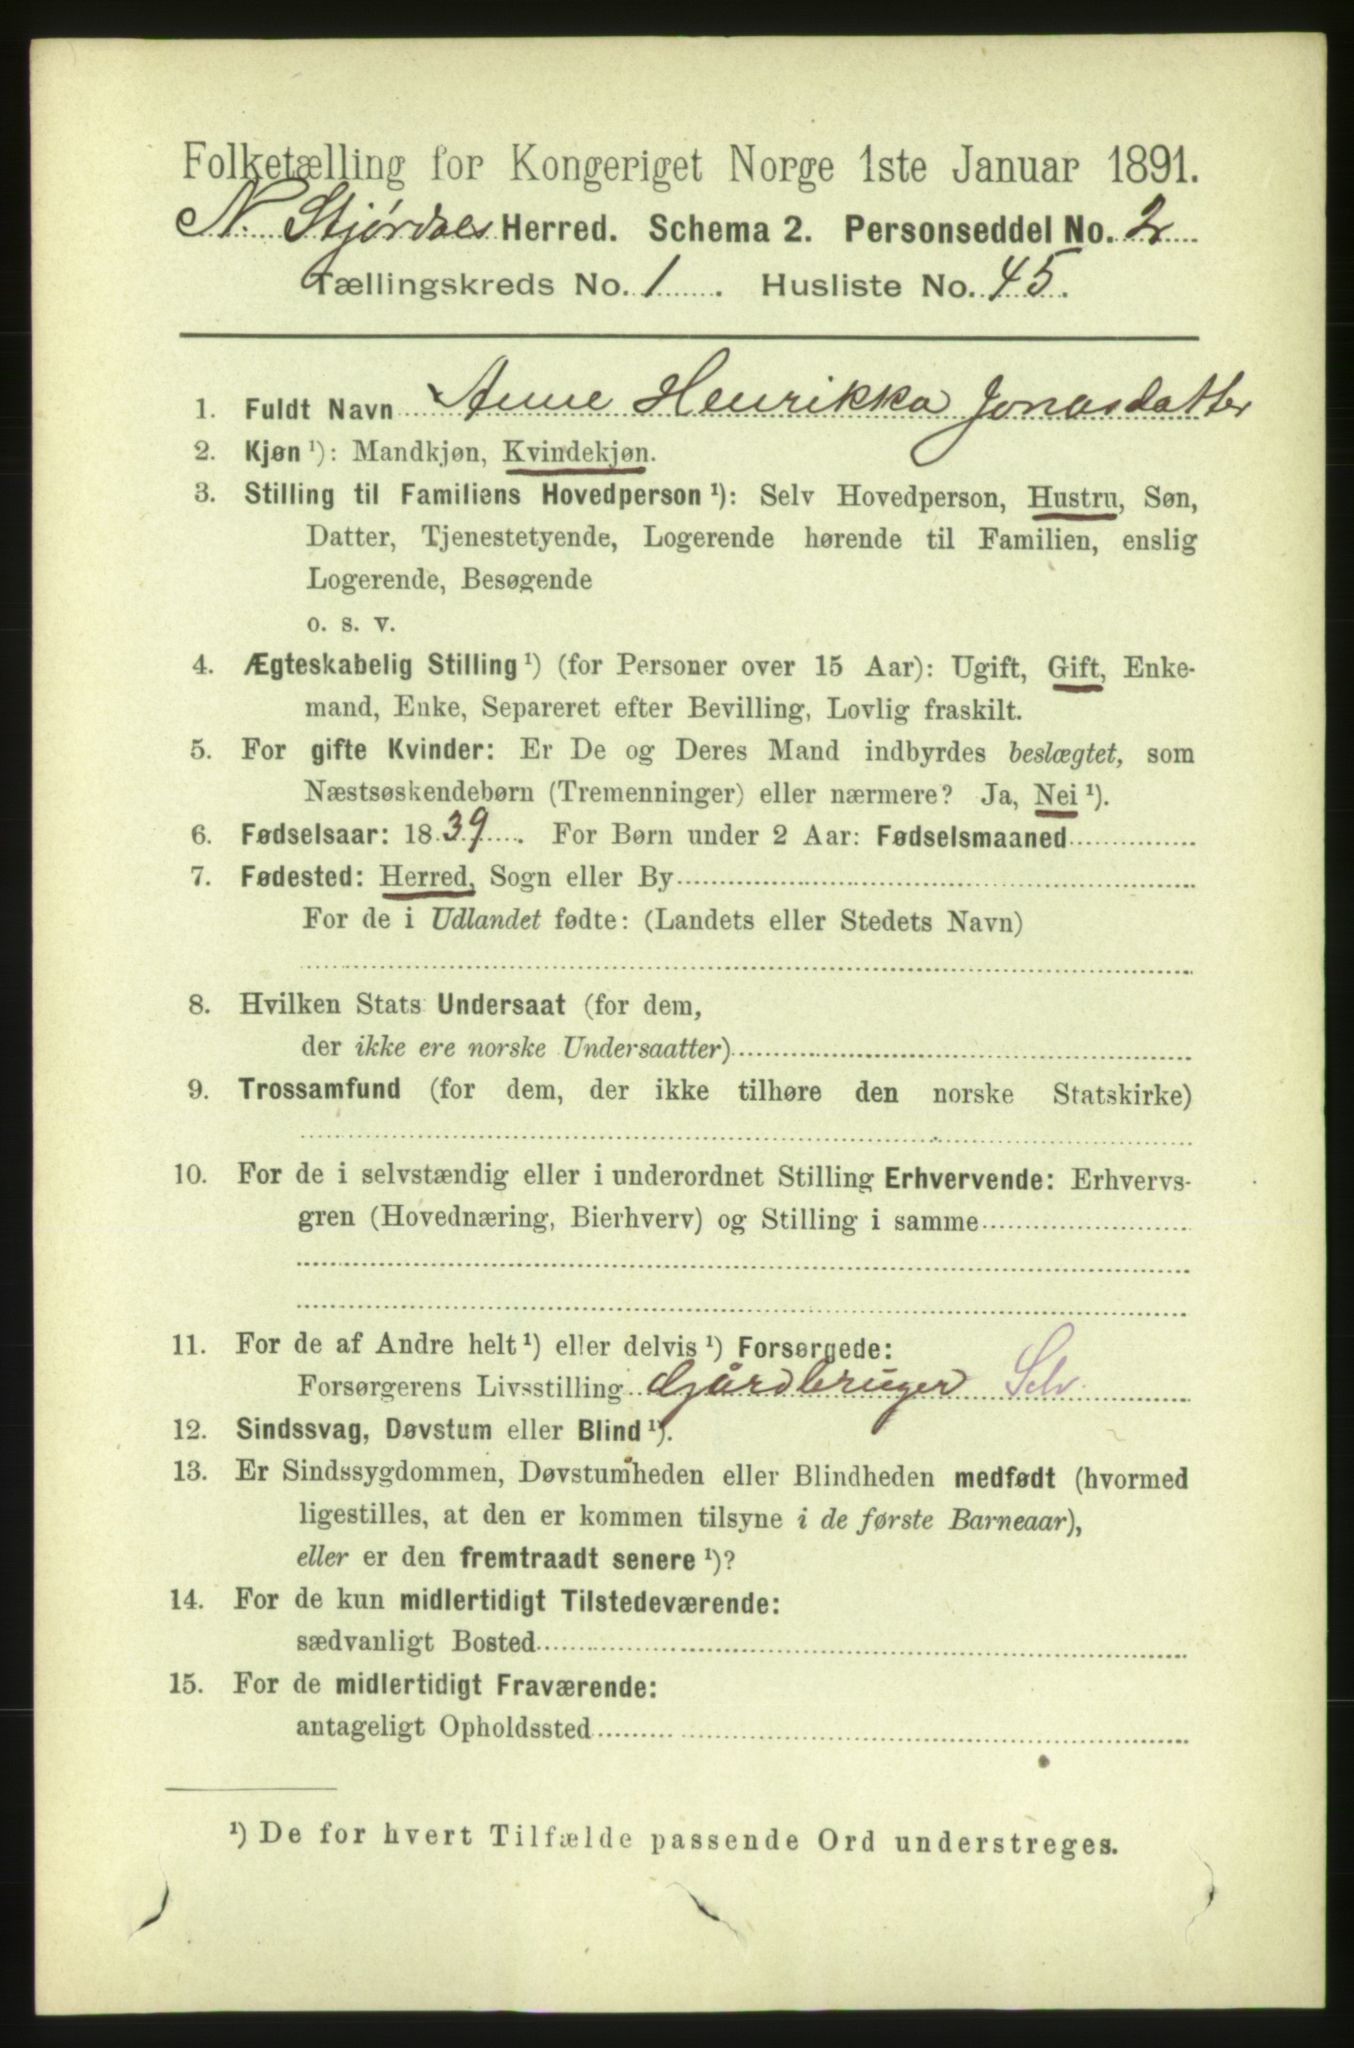 Folketælling for Kongeriget Norge 1ste Januar 1891.
N. Stjørdals Herred. Schema 2. Personseddel No. 2
Tællingskreds No. 1. Husliste No. 45.
1. Fuldt Navn Anne Henrikka Jonasdatter
2. Kjøn ¹): Mandkjøn, Kvindekjøn.
3. Stilling til Familiens Hovedperson ¹): Selv Hovedperson, Hustru, Søn,
Datter, Tjenestetyende, Logerende hørende til Familien, enslig
Logerende, Besøgende
o. s. v.
4. Ægteskabelig Stilling ¹) (for Personer over 15 Aar): Ugift, Gift, Enke-
mand, Enke, Separeret efter Bevilling, Lovlig fraskilt.
5. For gifte Kvinder: Er De og Deres Mand indbyrdes beslægtet, som
Næstsøskendebørn (Tremenninger) eller nærmere? Ja, Nei ¹).
6. Fødselsaar: 1839. For Børn under 2 Aar: Fødselsmaaned
7. Fødested: Herred, Sogn eller By
For de i Udlandet fødte: (Landets eller Stedets Navn)
8. Hvilken Stats Undersaat (for dem,
der ikke ere norske Undersaatter)
9. Trossamfund (for dem, der ikke tilhøre den norske Statskirke)
10. For de i selvstændig eller i underordnet Stilling Erhvervende: Erhvervs-
gren (Hovednæring, Bierhverv) og Stilling i samme
11. For de af Andre helt ¹) eller delvis ¹) Forsørgede:
Forsørgerens Livsstilling Gårdbruger Selv.
12. Sindssvag, Døvstum eller Blind ¹).
13. Er Sindssygdommen, Døvstumheden eller Blindheden medfødt (hvormed
ligestilles, at den er kommen tilsyne i de første Barneaar),
eller er den fremtraadt senere ¹)?
14. For de kun midlertidigt Tilstedeværende:
sædvanligt Bosted
15. For de midlertidigt Fraværende:
antageligt Opholdssted
¹) De for hvert Tilfælde passende Ord understreges.